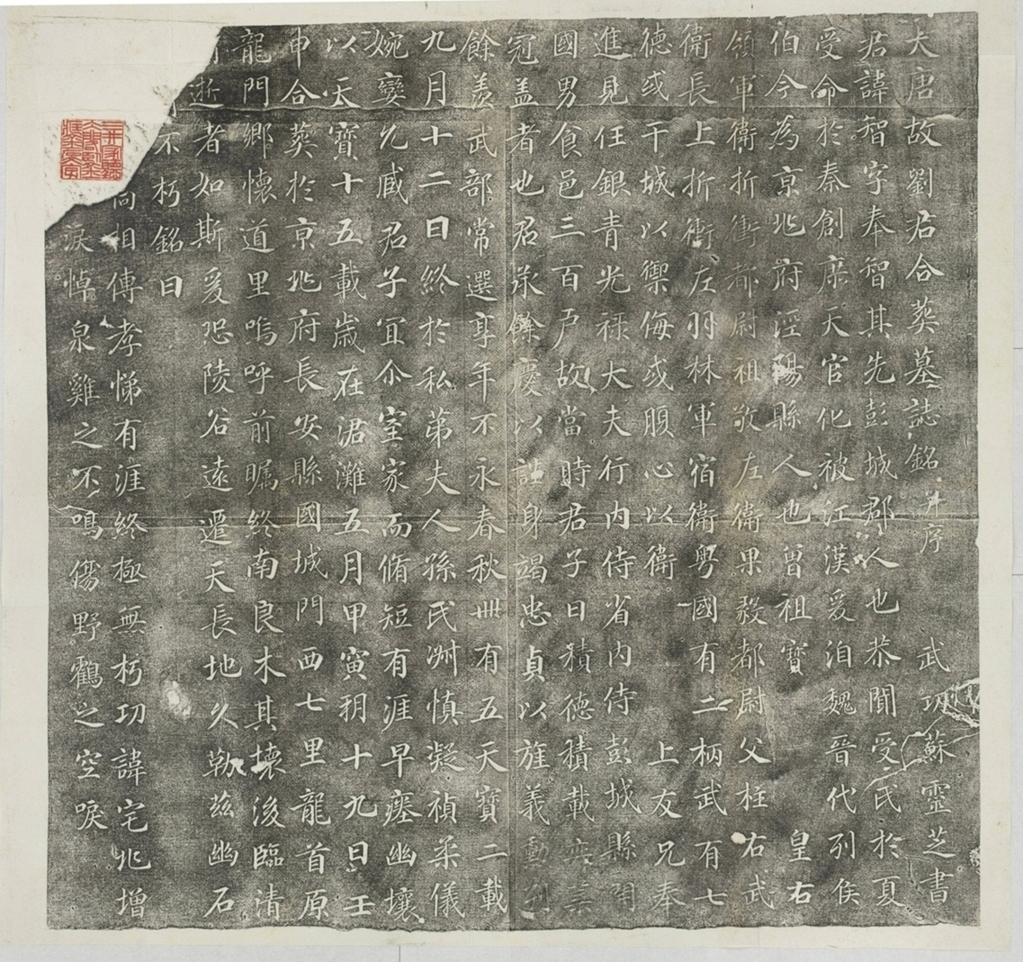 大唐故劉君合葬墓誌銘并序 武功蘇靈芝書
君諱智字奉智其先彭城郡人也恭聞受氏於夏
受命於秦創席天官化被江漢爰洎魏晉代列侯
伯今為京兆府涇陽縣人也曾祖寶 皇右
領軍衛折衝都尉祖敬左衛果毅都尉父柱右武
衛長上折衝左羽林軍宿衛粵國有二柄武有七
德或干城以禦侮或腹心以衛 上友兄奉
進見任銀青光祿大夫行內侍省內侍彭城縣開
國男食邑三百戶故當時君子曰積德積載
冠盖者也君承餘慶以謹身竭忠貞以旌義動
餘羨武部常選享年不永春秋卌有五天寶二載
九月十二日終於私第夫人孫氏淋慎凝禎柔儀
婉孌允臧君子宜尒室家而脩短有涯早瘞幽壤
以天寶十五載歲在涒灘五月甲寅朔十九日壬
申合葬於京兆府長安縣國城門西七里龍首原
龍門鄉懷道里嗚呼前瞩終南良木其壞後臨清
逝者如斯爰恐陵谷遠遷天長地久勒兹幽石
不朽銘曰
尚相傳孝悌有涯終極無朽功諱宅兆增
淚悼泉雞之不鳴傷野鸖之空唳